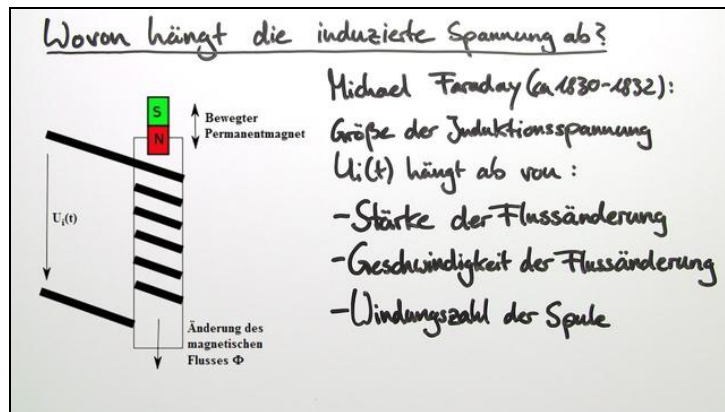 Wovon hängt die induzierte Spannung ab?
S
N
Bewegter
Permanentmagnet
Ui(t)
Änderung des
magnetischen
Flusses Φ
Michael Faraday (ca 1830-1832):
Größe der Induktionsspannung
Ui(t) hängt ab von:
-Stärke der Flussänderung
-Geschwindigkeit der Flussänderung
-Windungszahl der Spule